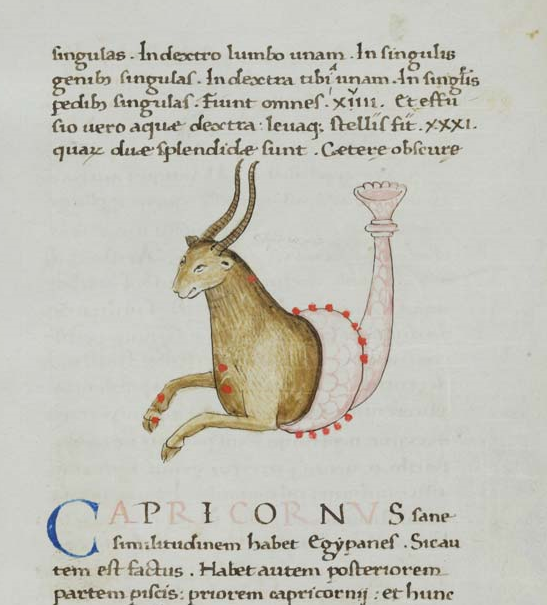 singulas . In dextro lumbo unam . In singulis
genibꝫ singulas . In dextra tibi unam . In singłis
pedibꝫ singulas . Fiunt omnes . xiiii . Et effu
sio uero aquæ dextra : leuaqꝫ stellis fit . xxxi .
quaꝝ duæ splendidæ sunt . Cætere obscure
CAPRICORNVS sane
similitudinem habet Egÿpanes . Sic au
tem est factus . Habet autem posteriorem
partem piscis : priorem capricornij : et hunc